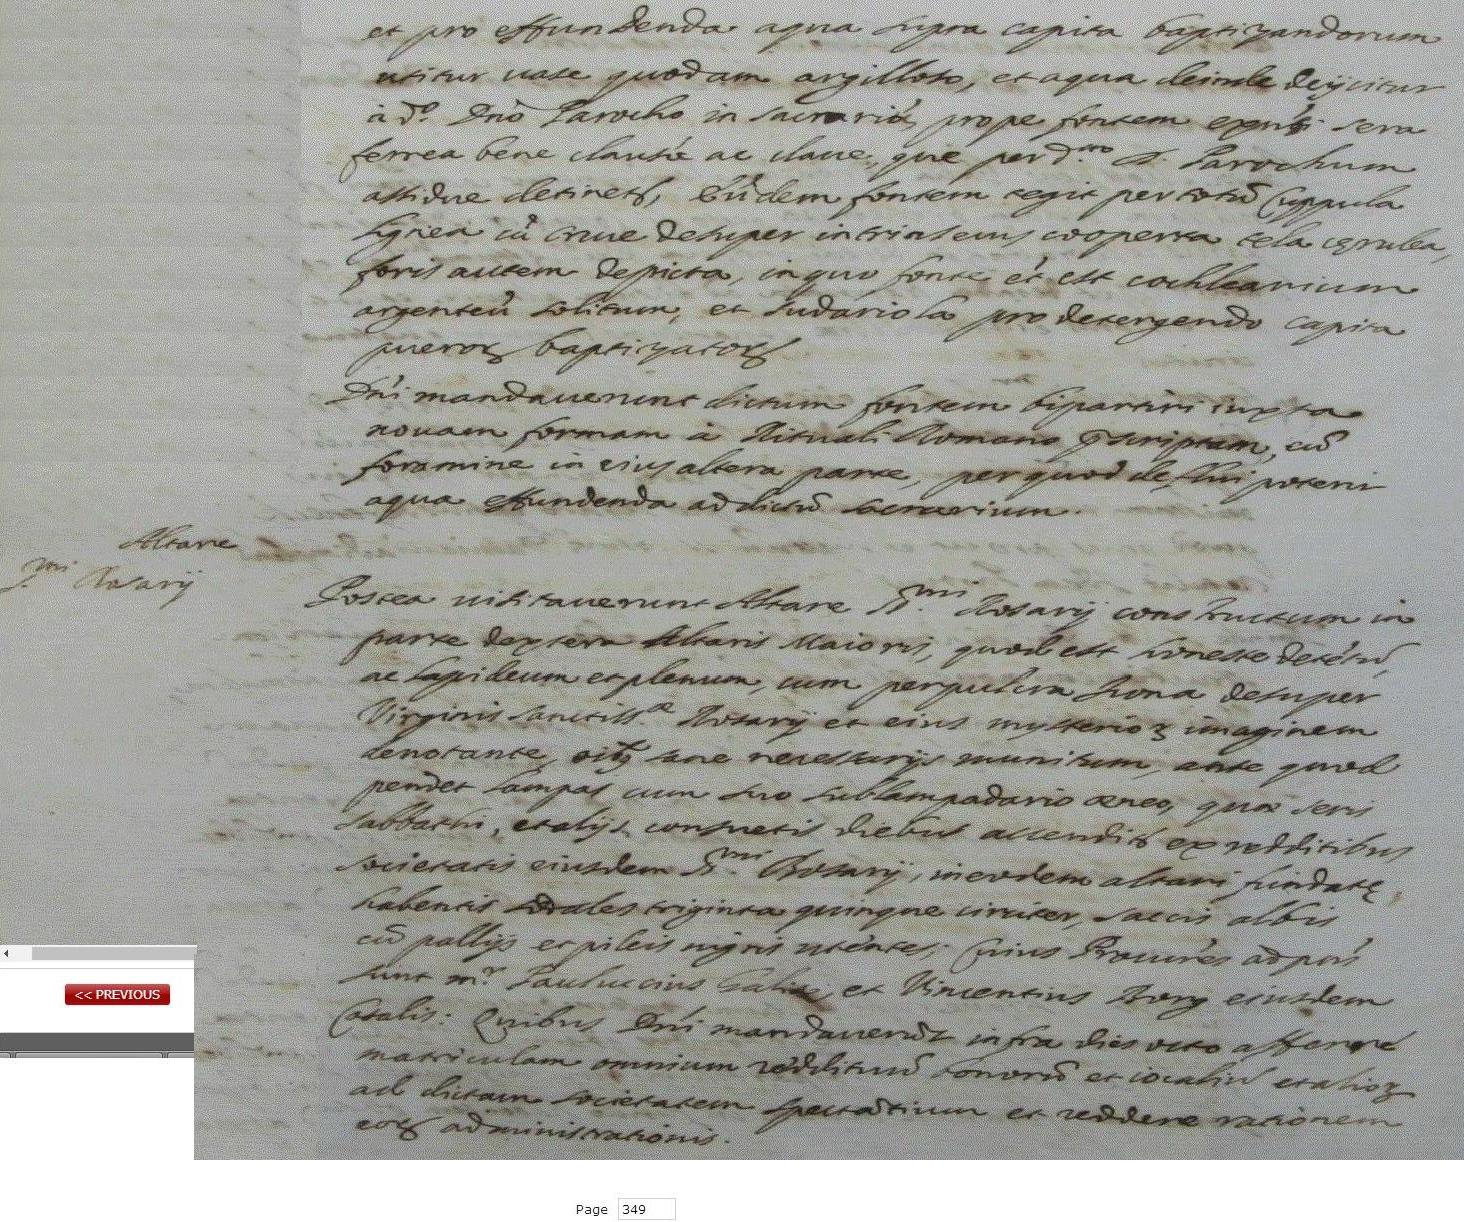 et pro effundenda aqua supra capita baptizandorum
utitur uase quodam argilloso, et aqua deinde deijcitur
à d.º Dño Parocho in sacrariũ, prope fontem sera
ferrea bene clausũ ac claue, que per d.um D. Parochum
assidue detinet, Eũdem fontem tegit per totũ Cuppula
lignea cũ cruce desuper intrinsecus cooperta tela cęrulea,
foris autem depicta, in quo fonte ét est cochlearium
argenteũ solitum, et sudariola pro detergendo capita
pueroꝝ baptizatoꝝ
Dñi mandauerunt dictum fontem bipartiri iuxta
nouam formam à Rituali Romano p̃scriptam, cũ
foramine in eius altera parte, per quod defluj poterit
aqua effundenda ad dictũ sacrarium.
Altare
S.mi Rosarij
Postea uisitauerunt Altare S.mi Rosarij constructum in
parte dextera Altaris Maioris, quod est honeste detétũ,
ac lapideum et plenum, cum perpulcra Icona desuper
Virginis sanctiss.æ Rosarij et eius mysterioꝝ imaginem
denotante, oibꝫ sane necessarijs munitum, ante quod
pendet lampas cum suo sublampadario æneo, quæ seris
sabbathi, et alijs consuetis diebus accendit ex redditibus
societatis eiusdem S.mi Rosarij, in eodem altari fundatę,
habentis sodales triginta quinque circiter, saccis albis
cũ pallijs et pileis nigris uténtes; Cuius Procures ad pñs
sunt m.r Pauluccius Galizi, et Vincentius Borg eiusdem
Casalis: Quibus Dñi mandauerũt infra dies octo afferre
matriculam omnium reddituũ bonorũ et iocaliũ et alioꝝ
ad dictam societatem spectãtium et reddere rationem
eoꝝ administrationis.
<< PREVIOUS
Page 349